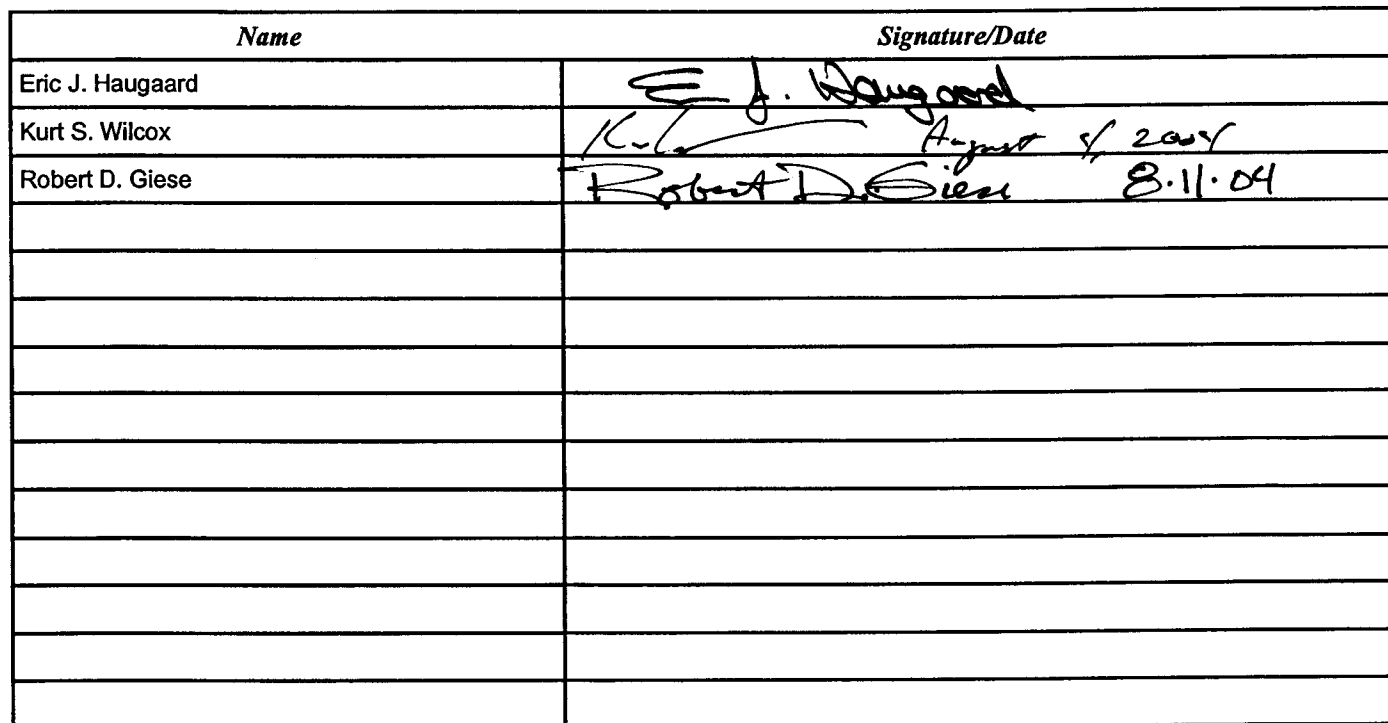 Name Signature/Date
Eric J. Haugaard E J. Haugaard
Kurt S. Wilcox August 2004
Robert D. Giese Robert D. Giese 8.11.04